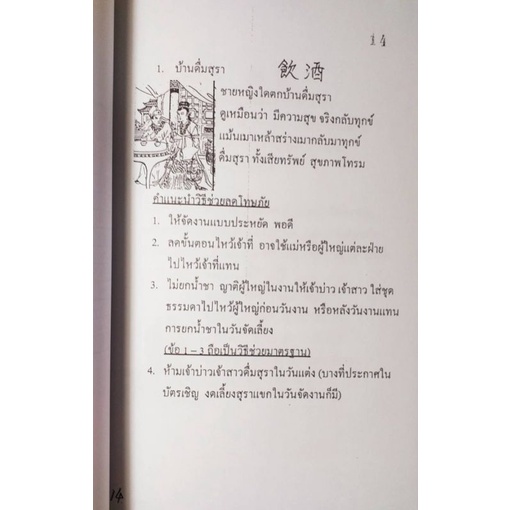 14
1. บ้านดื่มสุรา 飲酒
ชายหญิงใดตกบ้านดื่มสุรา
ดูเหมือนว่า มีความสุข จริงกลับทุกข์
แม้นเมาเหล้าสร่างเมากลับมาทุกข์
ดื่มสุรา ทั้งเสียทรัพย์ สุขภาพโทรม
คำแนะนำวิธีช่วยลดโทษภัย
1. ให้จัดงานแบบประหยัด พอดี
2. ลดขั้นตอนไหว้เจ้าที่ อาจใช้แม่หรือผู้ใหญ่แต่ละฝ่าย
ไปไหว้เจ้าที่แทน
3. ไม่ยกน้ำชา ญาติผู้ใหญ่ในงานให้เจ้าบ่าว เจ้าสาว ใส่ชุด
ธรรมดาไปไหว้ผู้ใหญ่ก่อนวันงาน หรือหลังวันงานแทน
การยกน้ำชาในวันจัดเลี้ยง
(ข้อ 1 – 3 ถือเป็นวิธีช่วยมาตรฐาน)
4. ห้ามเจ้าบ่าวเจ้าสาวดื่มสุราในวันแต่ง (บางที่ประกาศใน
บัตรเชิญ งดเลี้ยงสุราแขกในวันจัดงานก็มี)
14